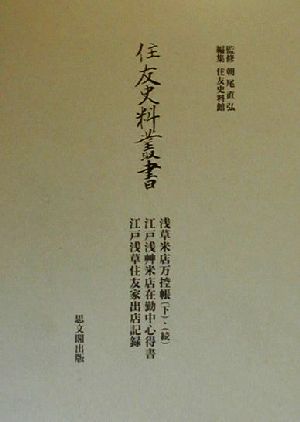 監修 朝尾直弘
編集 住友史料館
住友史料叢書
浅草米店万控帳(下)・(続)
江戸浅艸米店在勤中心得書
江戸浅草住友家出店記録
思文閣出版